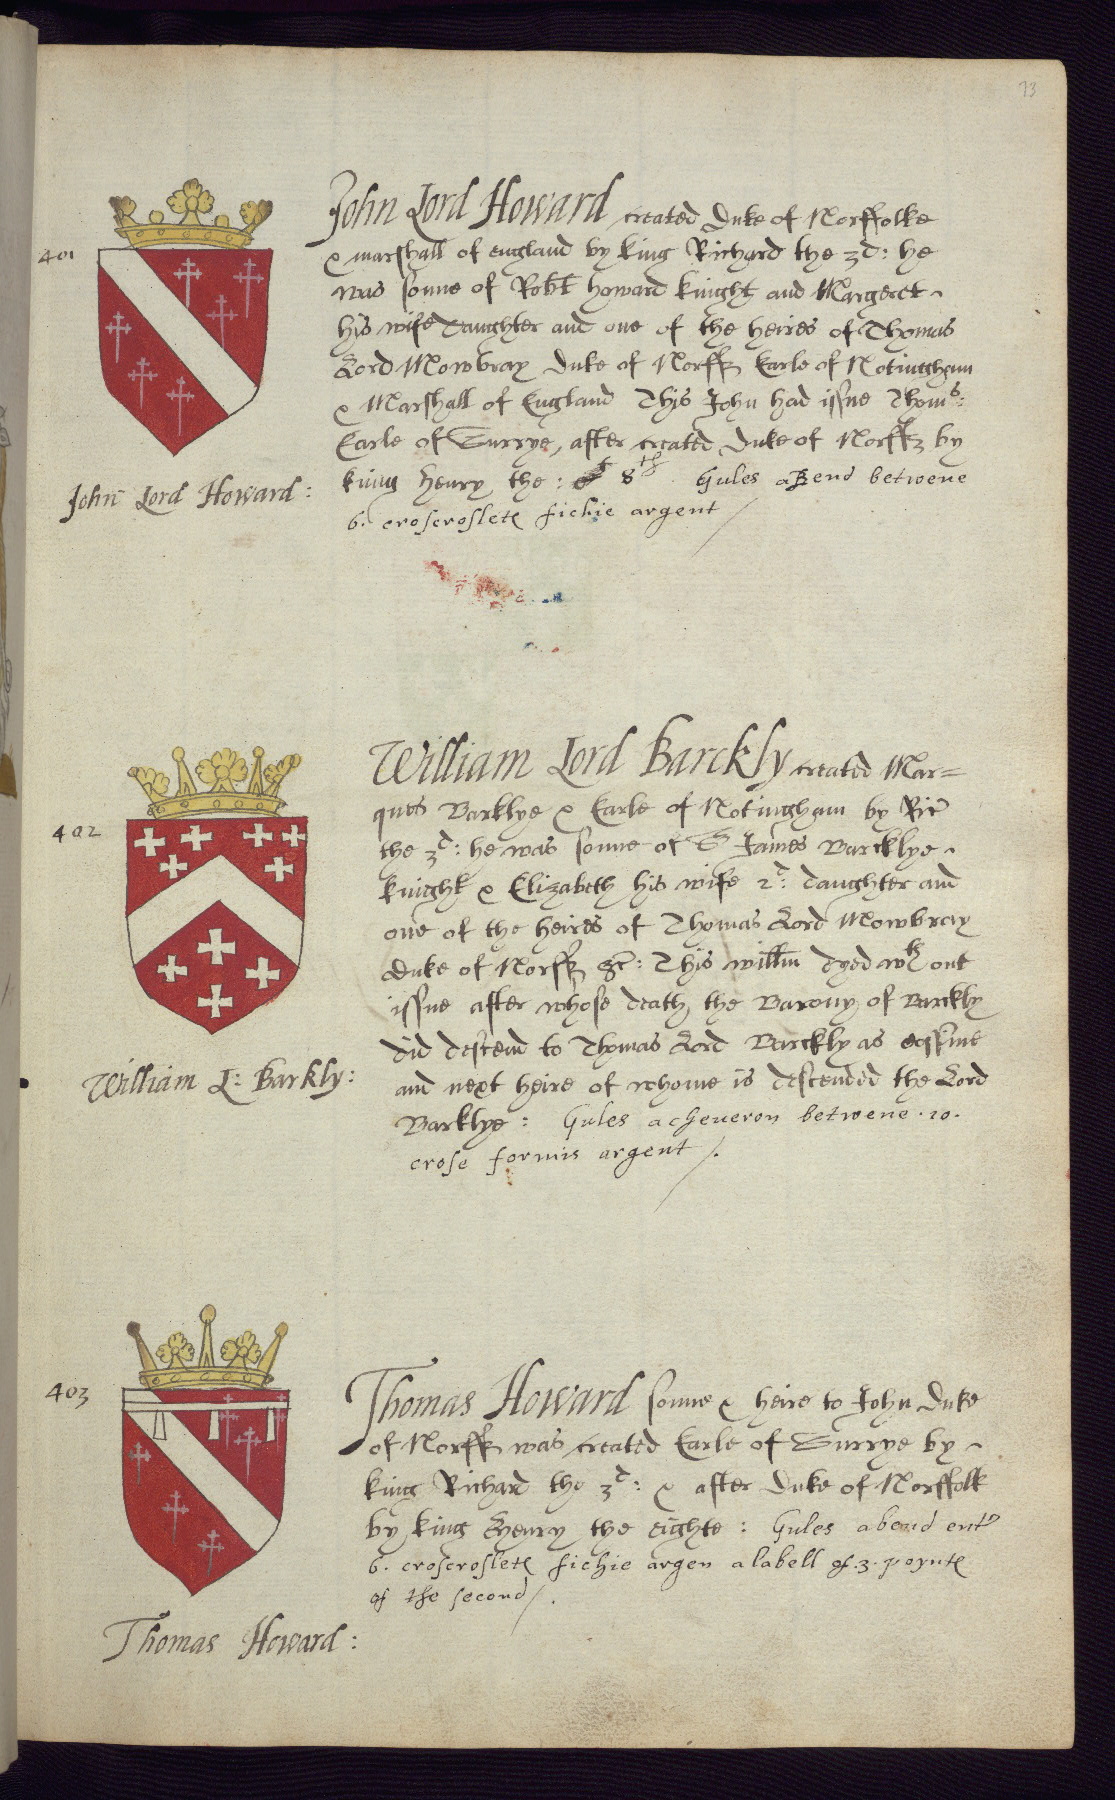 73
401
John Lord Howard created Duke of Norffolke
& marshall of england by king Richard the 3d: he
was sonne of Robt howard knight and Margeret
his wife daughter and one of the heires of Thomas
Lord Mowbray Duke of Norff Earle of Notingham
& Marshall of England This John had issue Thoms:
Earle of Surrye, after created Duke of Norff by
king Henry the: 8th. Gules a Bend betwene
6. croscroslets fichie argent /
John Lord Howard:
402
William Lord Barckly created Mar=
ques Barklye & Earle of Notingham by Ric
the 3d: he was sonne of Sr James Barcklye
knight & Elizabeth his wife 2d: daughter and
one of the heires of Thomas Lord Mowbray
Duke of Norff &c: This willm dyed wth out
issue after whose death the Barony of Barckly
did descend to Thomas Lord Barckly as
and next heire of whome is descended the Lord
Barklye: Gules a cheveron betwene .10.
crose formis argent /.
William L: Barkly:
403
Thomas Howard sonne & heire to John Duke
of Norff was created Earle of Surrye by
king Richard the 3d: & after Duke of Norffolk
by king Henry the eighte: Gules a bend entr
6. croscroslets fichie argen a labell of .3. poynts
of the second /.
Thomas Howard: